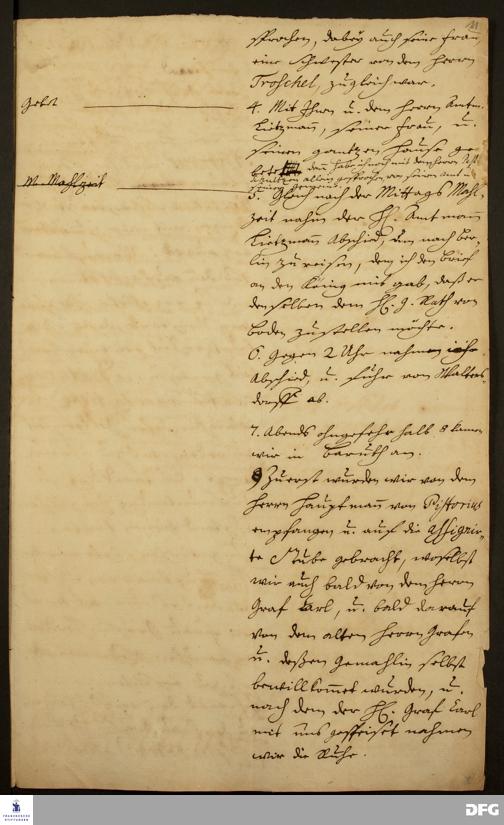 11
sprochen, dabey auch seine Frau
eine Schwester von dem Herrn
Troschel, zugleich war.
Gebet
4. Mit Ihnen u. dem Herrn Amtm.
Lietzmann, seiner Frau, u.
seinem gantzen Hause ge-
betet
dem habe ich mit dem Herrn
allein gesprochen von seinem Amt u.
M. Mahlzeit
5. Gleich nach der Mittags Mahl-
zeit nahm der H. Amtmann
Lietzmann Abschied, um nach Ber-
lin zu reisen, dem ich den Brief
an den König mit gab, daß er
denselben dem H. g. Rath von
Boden zustellen möchte.
6. Gegen 2 Uhr nahmen
Abschied, u. fuhr von Walters-
dorff ab.
7. Abends, ohngefehr halb 8 kamen
wir in Baruth an.
Zuerst wurden wir von dem
Herrn Hauptmann von Pistorius
empfangen u. auf die assignir-
te Stube gebracht, woselbst
wir auch bald von dem Herrn
Graf Carl, u. bald darauf
von dem alten Herrn Grafen
u. deßen Gemahlin selbst
bewillkommet wurden, u.
nach dem der H. Graf Carl
mit uns gespeiset nahmen
wir die Ruhe.
FRANCKESCHE
STIFTUNGEN
DFG